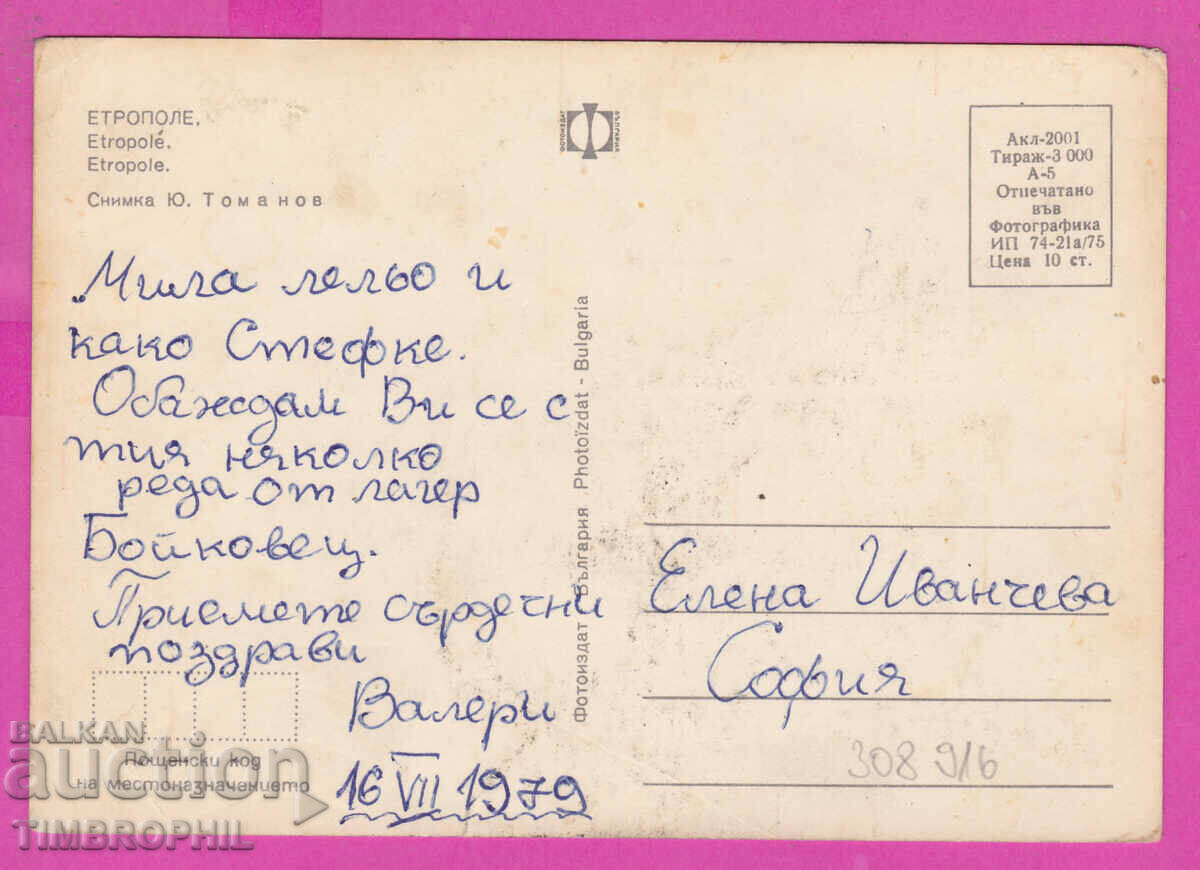 ЕТРОПОЛЕ.
Etropolé.
Etropole.
Снимка Ю. Томанов
ФОТОИЗДАТ
БЪЛГАРИЯ
Акл-2001
Тираж-3 000
А-5
Отпечатано
във
Фотографика
ИП 74-21а/75
Цена 10 ст.
„Мила лельо и
како Стефке.
Обаждам Ви се с
тия няколко
реда от лагер
Бойковец.
Приемете сърдечни
поздрави
Валери
16 VII 1979
Пощенски код
на местоназначението
Фотоиздат България Photoïzdat - Bulgaria
Елена Иванчева
София
308 916
BALKAN
auction
TIMBROPHIL